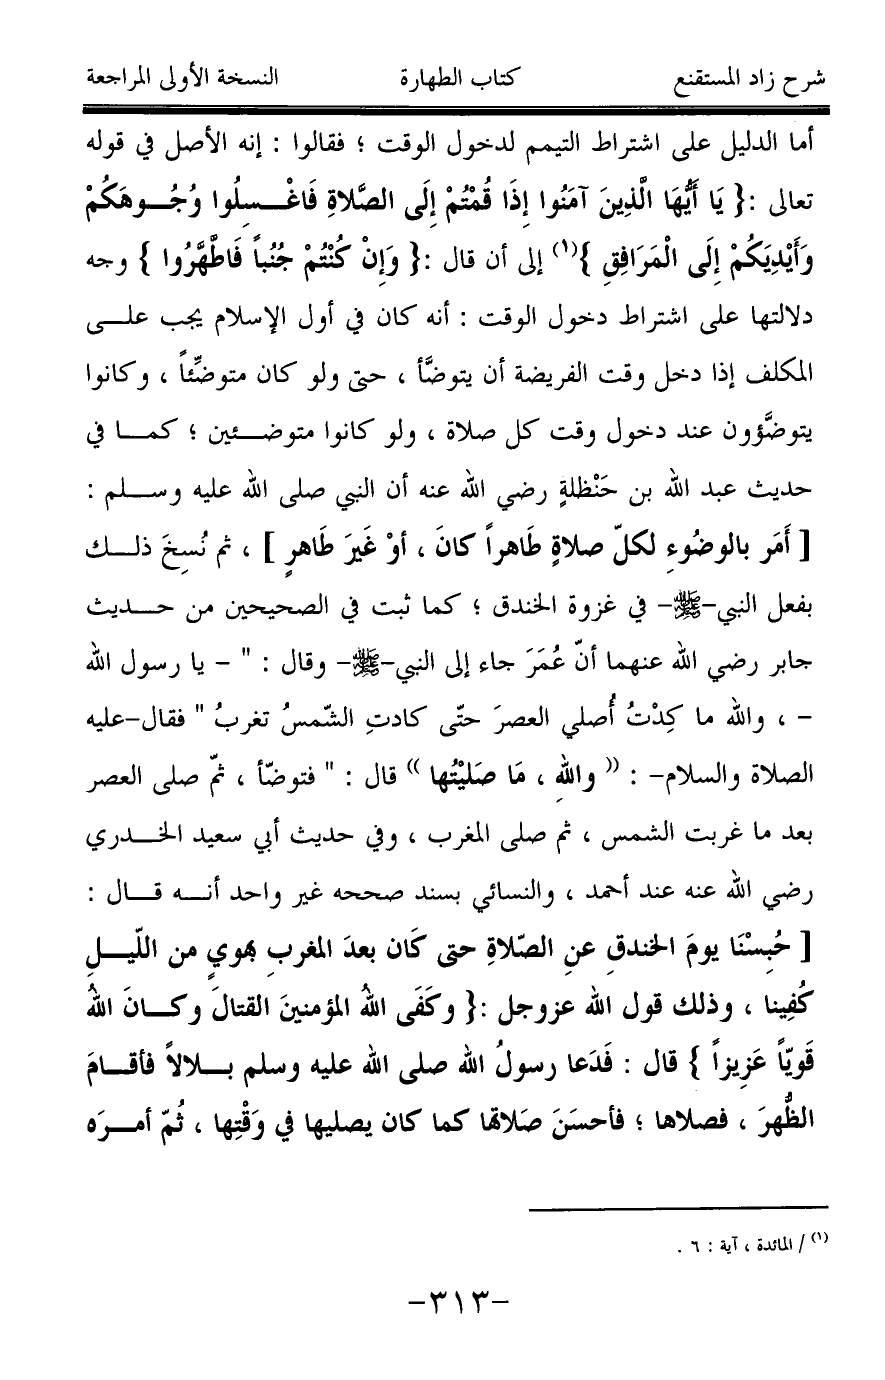 شرح زاد المستقنع كتاب الطهارة النسخة الأولى المراجعة
أما الدليل على اشتراط التيمم لدخول الوقت ؛ فقالوا : إنه الأصل في قوله
تعالى :{ يَا أَيُّهَا الَّذِينَ آمَنُوا إِذَا قُمْتُمْ إِلَى الصَّلاةِ فَاغْسِلُوا وُجُوهَكُمْ
وَأَيْدِيَكُمْ إِلَى الْمَرَافِقِ }(١) إلى أن قال :{ وَإِنْ كُنْتُمْ جُنُباً فَاطَّهَّرُوا } وجه
دلالتها على اشتراط دخول الوقت : أنه كان في أول الإسلام يجب على
المكلف إذا دخل وقت الفريضة أن يتوضَّأ ، حتى ولو كان متوضِّئاً ، وكانوا
يتوضَّؤون عند دخول وقت كل صلاة ، ولو كانوا متوضئين ؛ كما في
حديث عبد الله بن حَنْظلةٍ رضي الله عنه أن النبي صلى الله عليه وسلم :
[ أَمَر بالوضُوءِ لكلّ صلاةٍ طَاهراً كانَ ، أوْ غَيَر طَاهرٍ ] ، ثم نُسِخَ ذلك
بفعل النبي-ﷺ- في غزوة الخندق ؛ كما ثبت في الصحيحين من حديث
جابر رضي الله عنهما أنّ عُمَرَ جاء إلى النبي-ﷺ- وقال : " - يا رسول الله
- ، والله ما كِدْتُ أُصلي العصرَ حتّى كادتِ الشّمسُ تغربُ " فقال-عليه
الصلاة والسلام- : (( واللهِ ، مَا صَليْتُها )) قال : " فتوضّأ ، ثمّ صلى العصر
بعد ما غربت الشمس ، ثم صلى المغرب ، وفي حديث أبي سعيد الخدري
رضي الله عنه عند أحمد ، والنسائي بسند صححه غير واحد أنه قال :
[ حُبِسْنَا يومَ الخندقِ عنِ الصّلاةِ حتى كَان بعدَ المغربِ بهويٍ من اللّيلِ
كُفِينا ، وذلك قول الله عزوجل :{ وكَفَى اللهُ المؤمنينَ القتالَ وكانَ اللهُ
قَويّاً عَزِيزاً } قال : فَدَعا رسولُ الله صلى الله عليه وسلم بلالاً فأقامَ
الظُّهرَ ، فصلاها ؛ فأحسَنَ صَلاتها كما كان يصليها في وَقْتِها ، ثُمّ أمرَه
(١) / المائدة ، آية : ٦ .
-٣١٣-